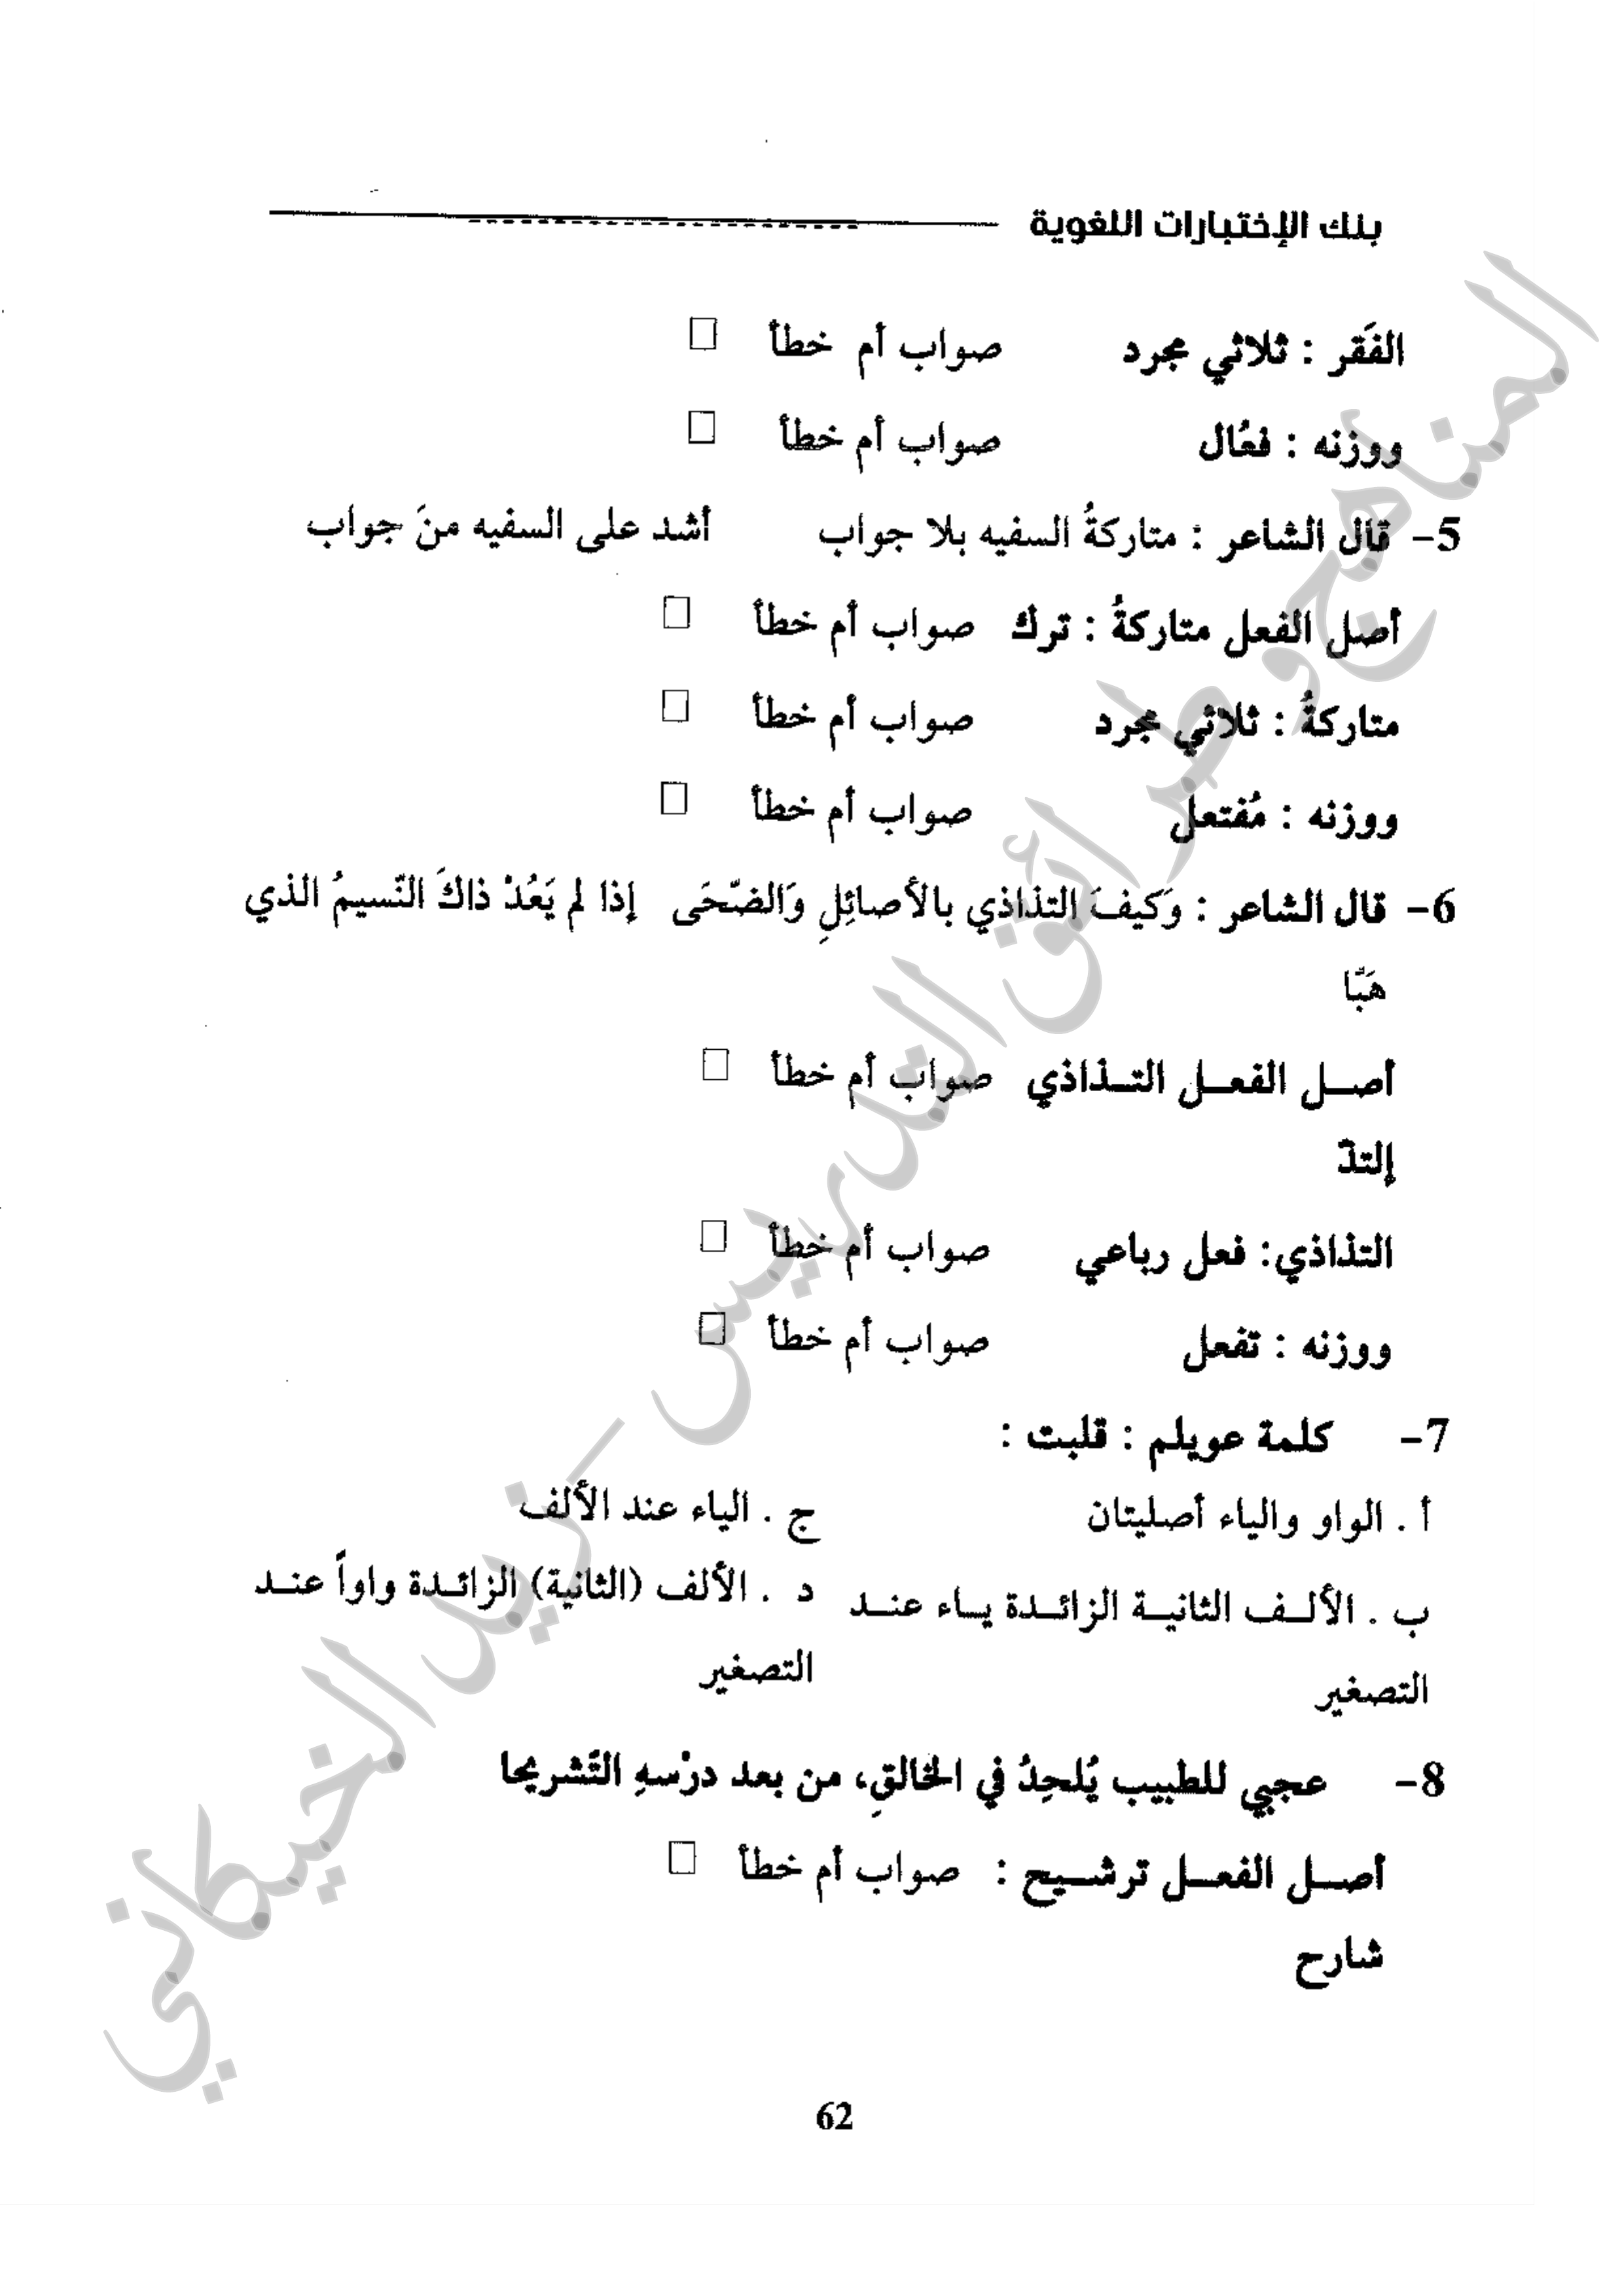 بنك الإختبارات اللغوية
الفَقر : ثلاثي مجرد صواب أم خطأ □
ووزنه : فعُال صواب أم خطأ □
5- قال الشاعر : متاركةُ السفيه بلا جواب أشد على السفيه منَ جواب
أصل الفعل متاركةُ : ترك صواب أم خطأ □
متاركةُ : ثلاثي مجرد صواب أم خطأ □
ووزنه : مُفتعل صواب أم خطأ □
6- قال الشاعر : وَكيفَ التذاذي بالأصائِلِ وَالضّحَى إذا لم يَعُدْ ذاكَ النّسيمُ الذي
هَبّا
أصـل الفعـل التـذاذي صواب أم خطأ □
إلتذّ
التذاذي: فعل رباعي صواب أم خطأ □
ووزنه : تفعل صواب أم خطأ □
7- كلمة عويلم : قلبت :
أ . الواو والياء أصليتان ج . الياء عند الألف
ب . الألـف الثانيـة الزائـدة يـاء عنـد د . الألف (الثانية) الزائـدة واواً عنـد
التصغير التصغير
8- عجبي للطبيب يُلحِدُ في الخالقِ، من بعد درْسهِ التّشريحا
أصـل الفعـل ترشـيح : صواب أم خطأ □
شارح
62
المناهج وطرائق التدريس - زيد الخيكاني